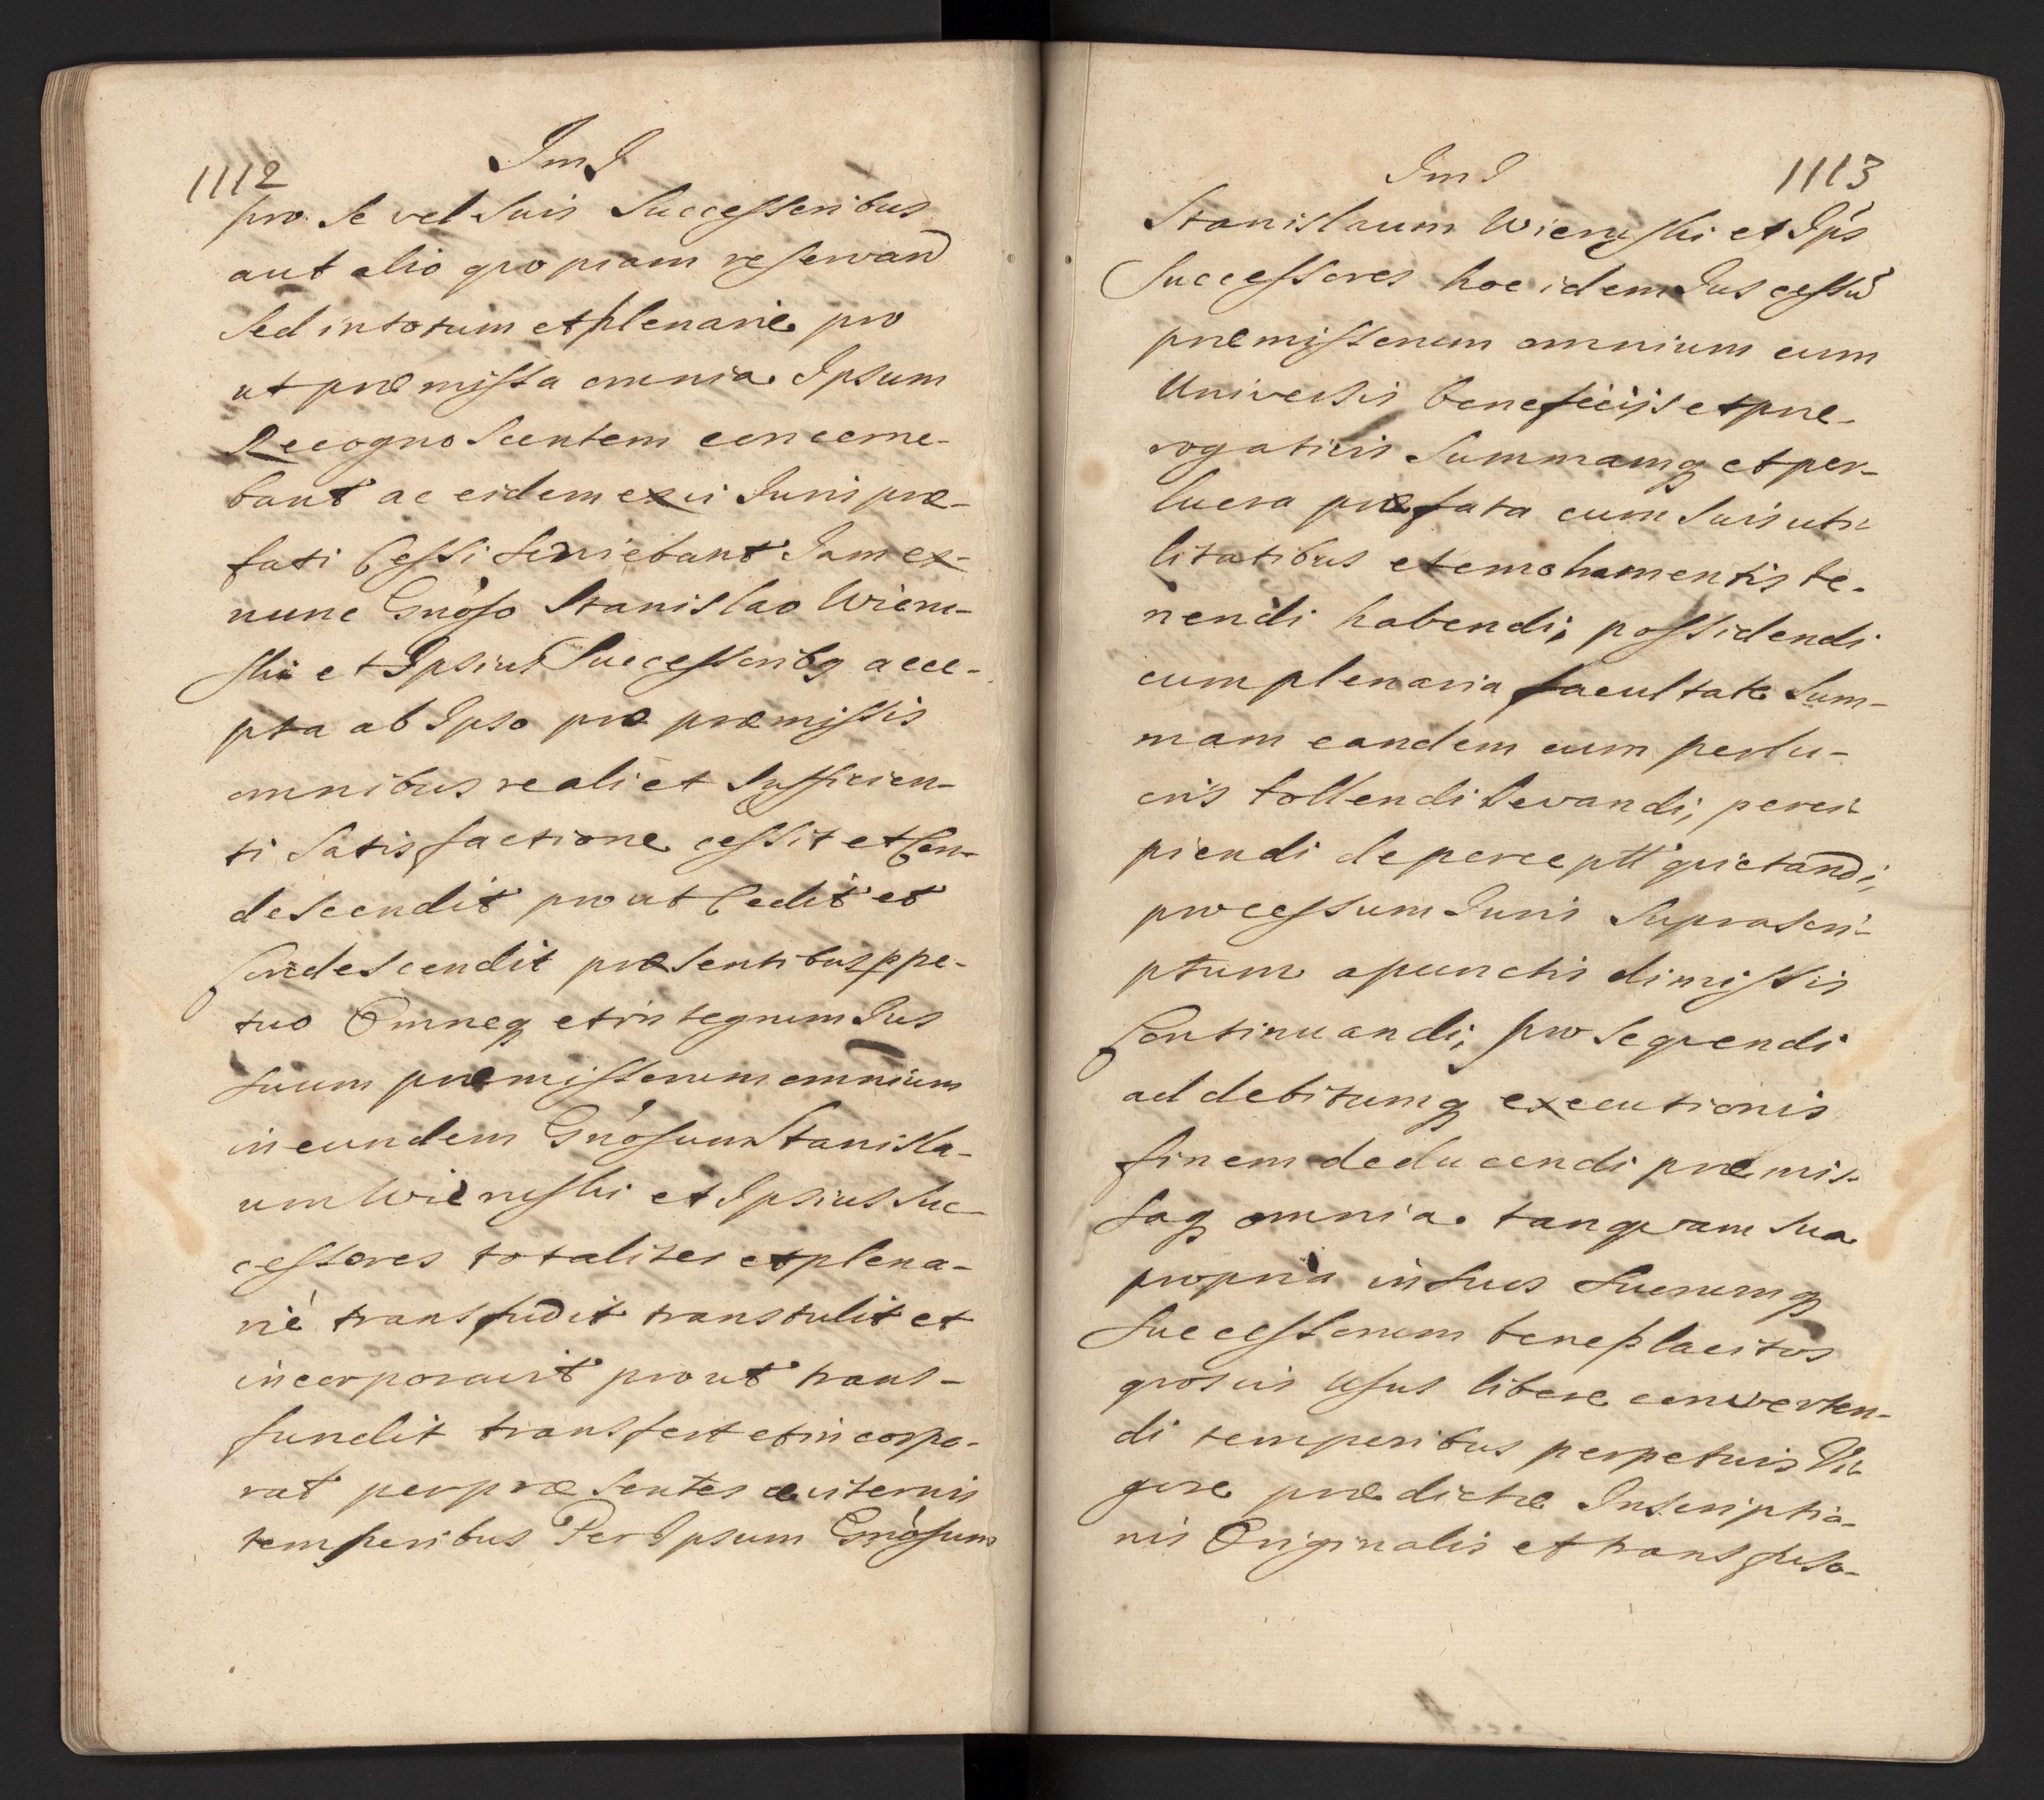 1112
ImJ
pro Se vel Suis Successoribus
aut alio quopiam reservand
Sed in totum et plenarie pro
ut præmissa omnia Ipsum
Recognoscentem concerne-
bant ac eidem ex vi Juris præ-
fati Cessi Serviebant Jam ex-
nunc Gnõso Stanislao Wieru-
ski et Ipsius Successoribq acce-
pta ab Ipso præ præmissis
omnibus reali et Sufficien-
ti Satisfactione cessit et Con-
descendit prout Cedit et
Condescendit præsentibus ppe-
tuo Omneq et integrum Jus
Suum præmissorum omnium
in eundem Gnõsum Stanisla-
um Wieruski et Ipsius Suc-
cessores totaliter et plena-
riè transfudit transtulit et
incorporavit prout trans-
fundit transfert et incorpo-
rat per præsentes æviternis
temporibus Per Ipsum Gnõsum
ImJ
1113
Stanislaum Wieruski et Ips
Successores hoc idem Jus cessũ
præmissorum omnium cum
Universis beneficijs et præ-
rogativis Summamq et per-
lucra præfata cum Suis uti-
litatibus et emolumentis te-
nendi habendi, possidendi
cum plenaria facultate Sum-
mam eandem cum perlu-
cris tollendi Levandi, perci-
piendi de perceptt quietandi,
processum Juris Suprascri-
ptum a punctis dimissis
Continuandi, prosequendi
ad debitumq executionis
finem deducendi præmis-
saq omnia tanquam Sua
propria in Suos Suorumq
Successorum beneplacitos
quosvis Usus libere converten-
di temporibus perpetuis Vi-
gore prædictæ Inscriptio-
nis Originalis et transfuso-